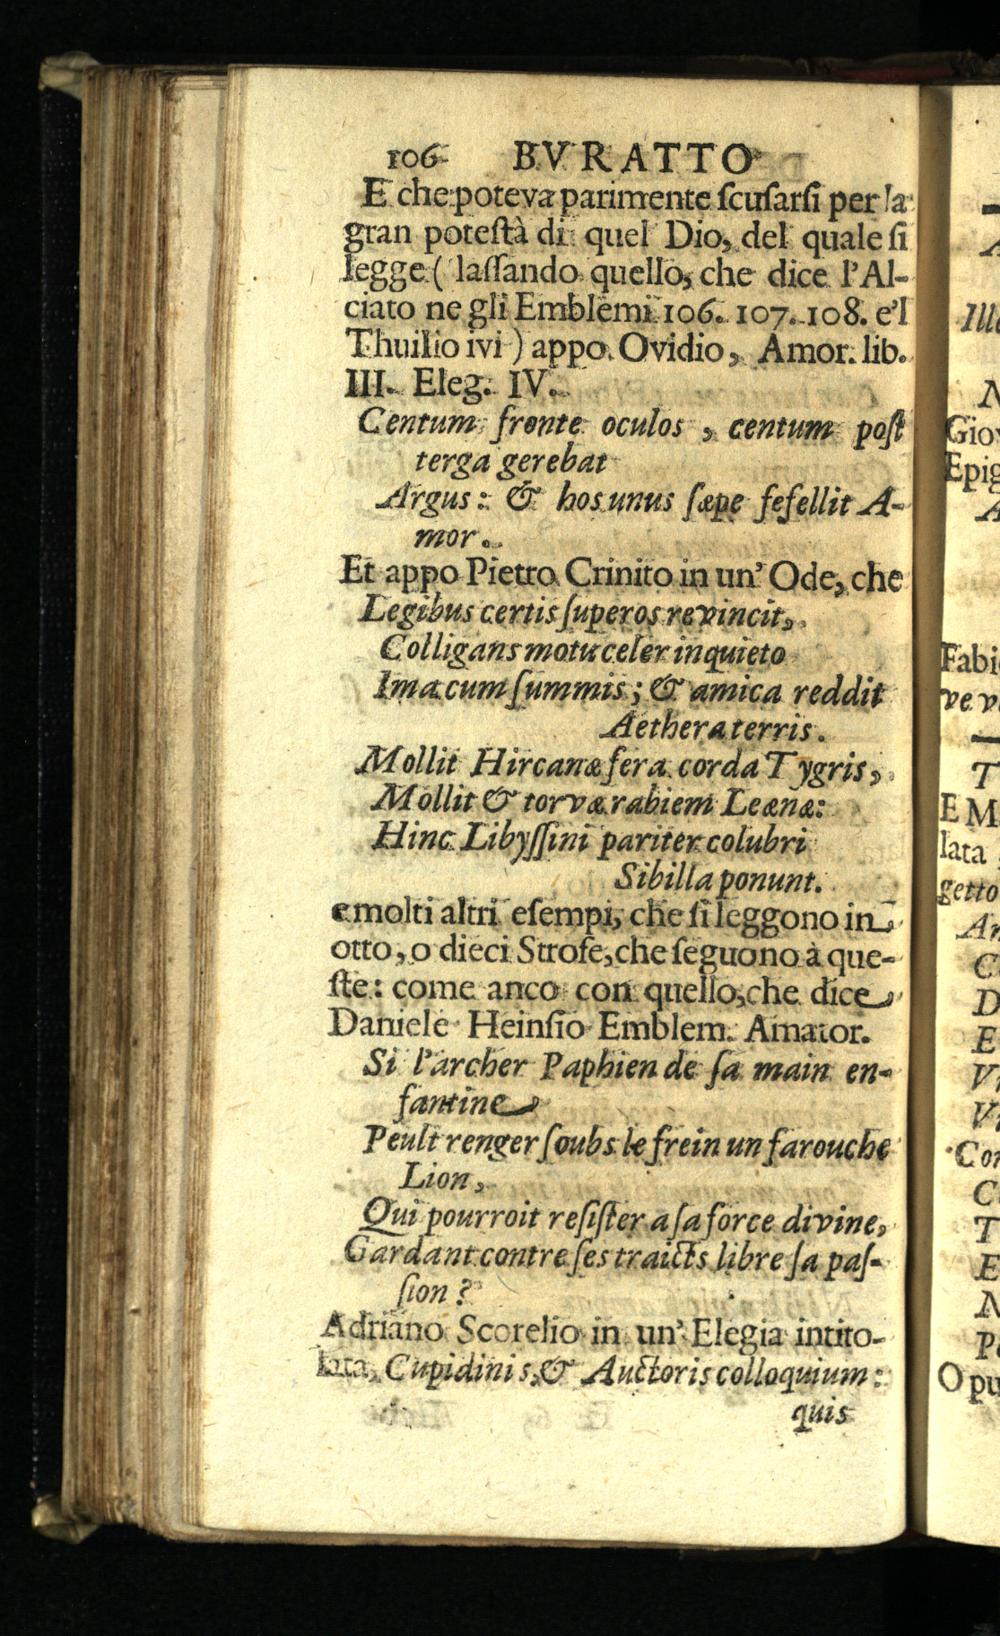 106 BVRATTO
E che poteva parimente scusarsi per la
gran potestà di quel Dio, del quale si
legge ( lassando quello, che dice l'Al-
ciato ne gli Emblemi 106. 107. 108. e'l
Thuilio ivi ) appo Ovidio, Amor. lib.
III. Eleg. IV.
Centum fronte oculos , centum post
terga gerebat
Argus: & hos unus sæpe fefellit A-
mor.
Et appo Pietro Crinito in un' Ode, che
Legibus certis superos revincit,
Colligans motu celer inquieto
Ima cum summis; & amica reddit
Aethera terris.
Mollit Hircanæ fera corda Tygris,
Mollit & torvæ rabiem Leænæ:
Hinc Libyssini pariter colubri
Sibilla ponunt.
e molti altri esempi, che si leggono in
otto, o dieci Strofe, che seguono à que-
ste: come anco con quello, che dice
Daniele Heinsio Emblem. Amator.
Si l'archer Paphien de sa main en-
fantine
Peult renger soubs le frein un farouche
Lion,
Qui pourroit resister a sa force divine,
Gardant contre ses traicts libre sa pas-
sion ?
Adriano Scorelio in un' Elegia intito-
lata, Cupidinis, & Auctoris colloquium:
quis
Ille
N
Gio
Epig
A
Fabi
ve v
T
E M
lata
getto
Ar
C
D
E
Vi
Vi
Con
C
T
E
N
P
Opu